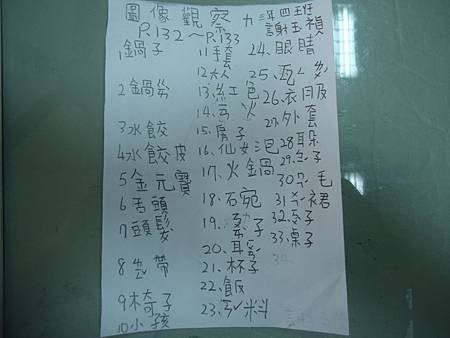 圖像觀察
P.132～P.133
九 三年四班
謝玉禎
1鍋子
2鍋ㄌㄠˊ
3水餃
4水餃皮
5金元寶
6舌頭
7頭髮
9椅子
10小孩
11手套
12大人
13.紅色
14.
15.房子
16.仙女泡
17.火鍋
18.石宛
19.子
20.耳
21.杯子
22.飯
23.料
24.眼睛
25.
26.衣服
27.外套
28耳朵
29.子
30.毛
31.裙
32.子
33.桌子
34.